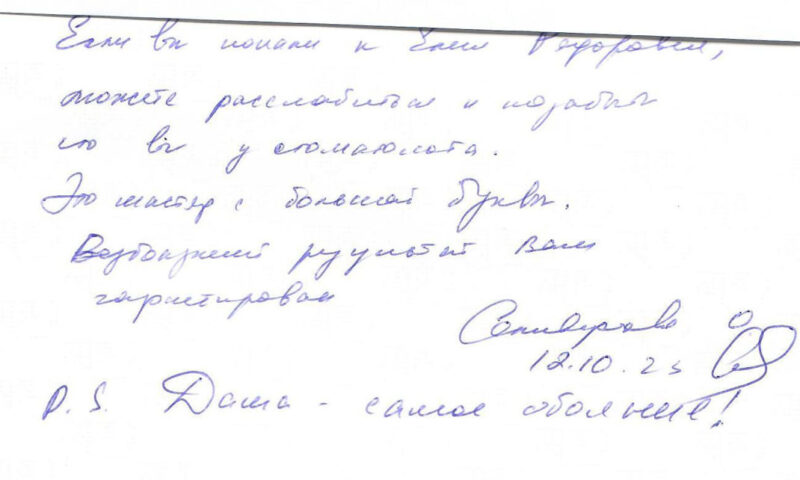 Если вы попали к Елене Федоровне,
можете расслабиться и позабыть
что вы у стоматолога.
Это мастер с большой буквы.
Безболезненный результат Вам
гарантирован
12.10.23
P.S. Даша - самое обояние!